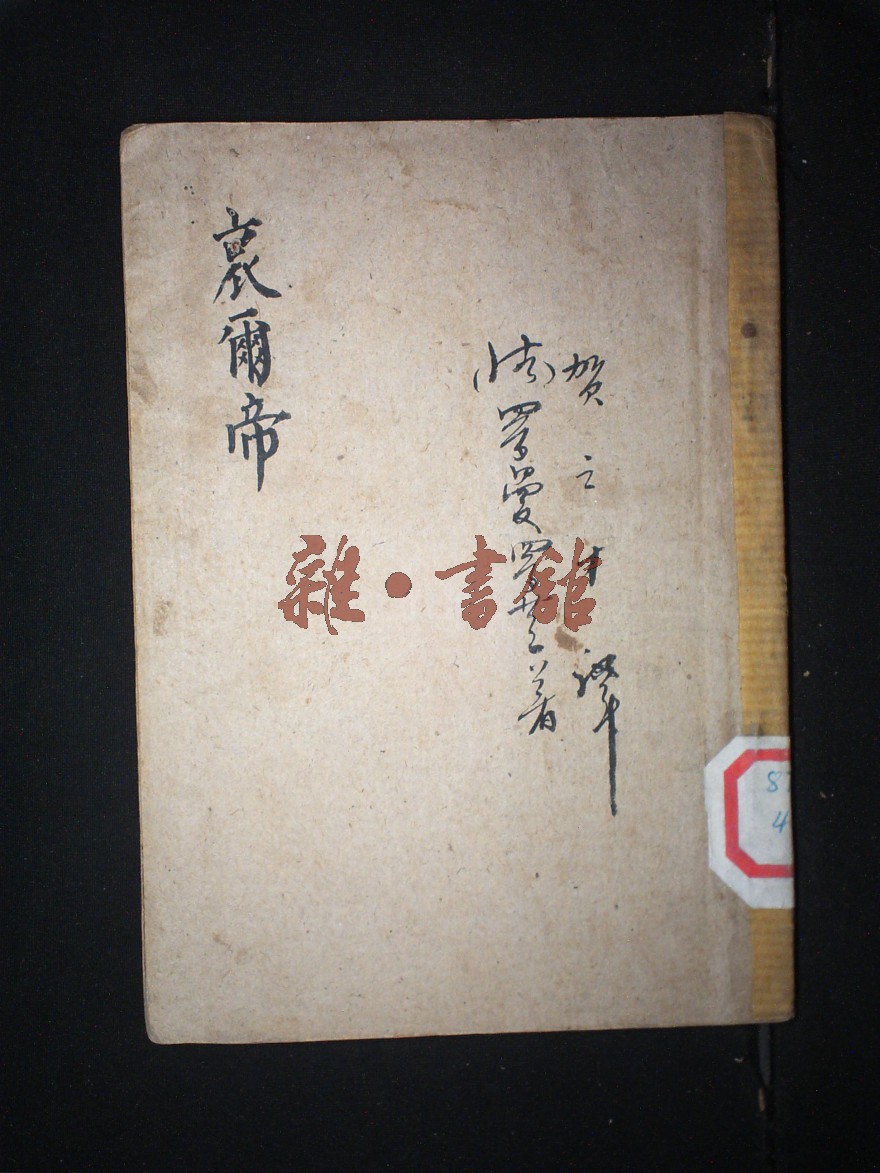 賀之才 譯
(法)羅曼羅蘭著
哀爾帝
雜·書館
8
4